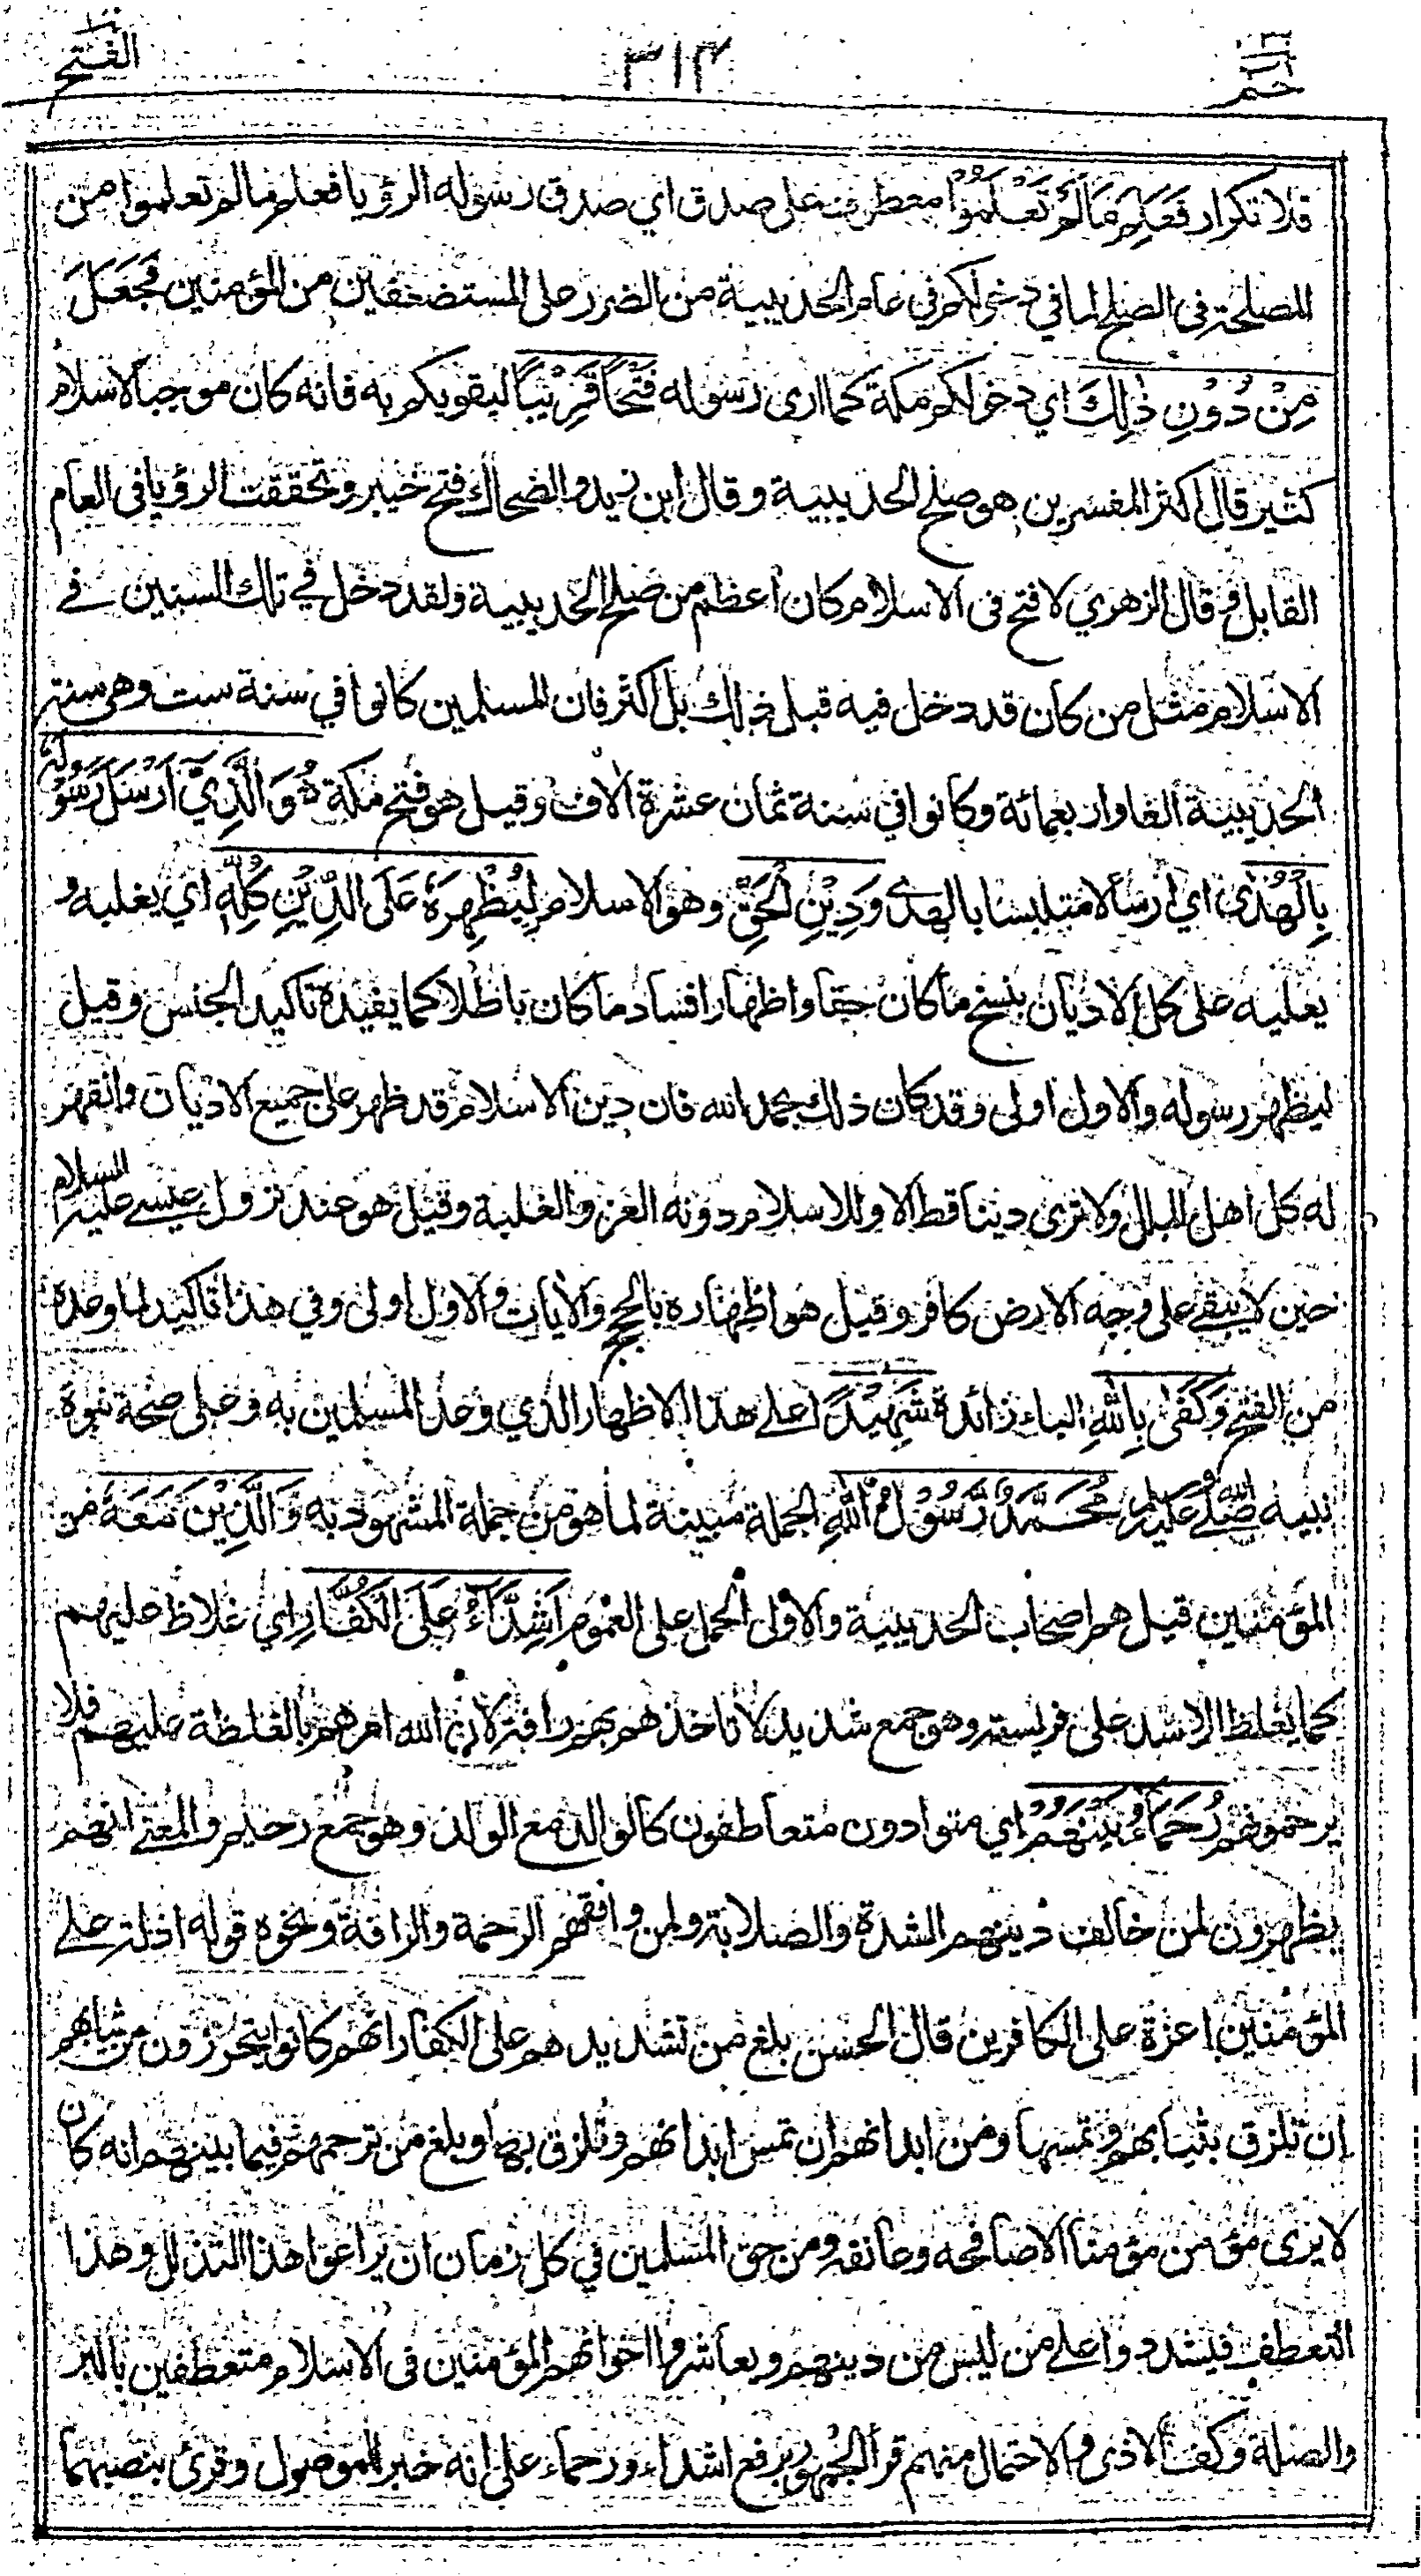 حم
٣١٤
الفتح
فلا تكرار فَعَلِمَ مَا لَمْ تَعْلَمُوْا معطوف على صدق اي صدق رسوله الرؤيا فعلم ما لم تعلموا من
المصلحة في الصلح لما في دخولكم في عام الحديبية من الضرر على المستضعفين من المؤمنين فَجَعَلَ
مِنْ دُوْنِ ذٰلِكَ اي دخولكم مكة كما ارى رسوله فَتْحًا قَرِيْبًا ليقويكم به فانه كان موجبا لاسلام
كثير قال اكثر المفسرين هو صلح الحديبية وقال ابن زيد والضحاك فتح خيبر وتحققت الرؤيا في العام
القابل وقال الزهري لا فتح في الاسلام كان اعظم من صلح الحديبية ولقد دخل في تلك السنين في
الاسلام مثل من كان قد دخل فيه قبل ذلك بل اكثر فان المسلمين كانوا في سنة ست وهي سنة
الحديبية الفا واربعمائة وكانوا في سنة ثمان عشرة الاف وقيل هو فتح مكة هُوَ الَّذِيْٓ اَرْسَلَ رَسُوْلَهٗ
بِالْهُدٰى اي ارسالا متلبسا بالهدى وَدِيْنِ الْحَقِّ وهو الاسلام لِيُظْهِرَهٗ عَلَى الدِّيْنِ كُلِّهٖ اي يغلبه و
يعليه على كل الاديان بنسخ ما كان حقا واظهار افساد ما كان باطلا كما يفيده تاكيد الجنس وقيل
ليظهر رسوله والاول اولى وقد كان ذلك بحمد الله فان دين الاسلام قد ظهر على جميع الاديان وانقهر
له كل اهل الملل ولا ترى دينا قط الا وللاسلام دونه العز والغلبة وقيل هو عند نزول عيسى عليه السلام
حين لا يبقى على وجه الارض كافر وقيل هو اظهاره بالحجج والايات والاول اولى وفي هذا تاكيد لما وعده
من الفتح وَكَفٰى بِاللّٰهِ الباء زائدة شَهِيْدًا على هذا الاظهار الذي وعد المسلمين به وعلى صحة نبوة
نبيه صلى الله عليه وسلم مُحَمَّدٌ رَّسُوْلُ اللّٰهِ الجملة مبينة لما هو من جملة المشهود به وَالَّذِيْنَ مَعَهٗ من
المؤمنين قيل هم اصحاب الحديبية والاولى الحمل على العموم اَشِدَّآءُ عَلَى الْكُفَّارِ اي غلاظ عليهم
كما يغلظ الاسد على فريسته وهو جمع شديد لا تاخذهم بهم رافة لان الله امرهم بالغلظة عليهم فلا
يرحمونهم رُحَمَآءُ بَيْنَهُمْ اي متوادون متعاطفون كالوالد مع الولد وهو جمع رحيم والمعنى انهم
يظهرون لمن خالف دينهم الشدة والصلابة ولمن وافقهم الرحمة والرافة ونحوه قوله اذلة على
المؤمنين اعزة على الكافرين قال الحسن بلغ من تشديدهم على الكفار انهم كانوا يتحرزون من ثيابهم
ان تلزق بثيابهم وتمسها ومن ابدانهم ان تمس ابدانهم وتلزق بها وبلغ من ترحمهم فيما بينهم انه كان
لا يرى مؤمن مؤمنا الا صافحه وعانقه ومن حق المسلمين في كل زمان ان يراعوا هذا التذلل وهذا
التعطف فيشددوا على من ليس من دينهم ويعاشروا اخوانهم المؤمنين في الاسلام متعطفين بالبر
والصلة وكف الاذى والاحتمال منهم قرأ الجمهور برفع اشداء ورحماء على انه خبر للموصول وقرئ بنصبهما